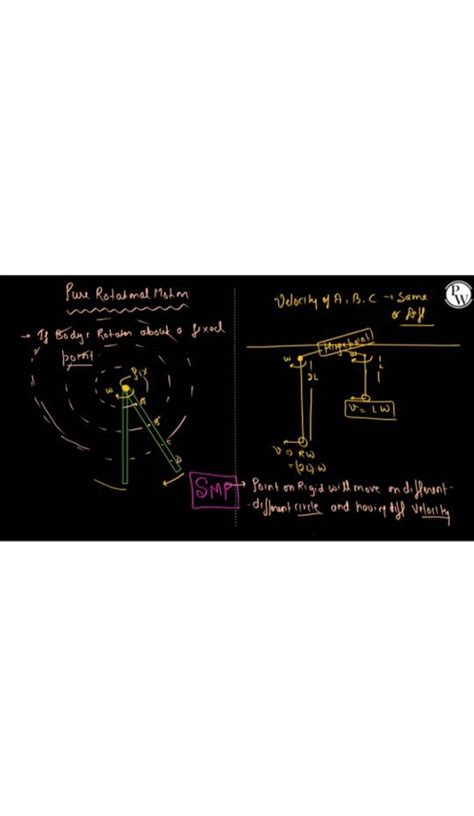 Pure Rotational Motion
→ If Body Rotates about a fixed
point
fix
w
A
B
C
D
Velocity of A, B, C → Same
or Diff
Hinge point
w
2L
w
L
V = LW
V ⇒ RW
= (2L).W
SMP → Point on Rigid will move on different
-different circle and having diff Velocity
PW